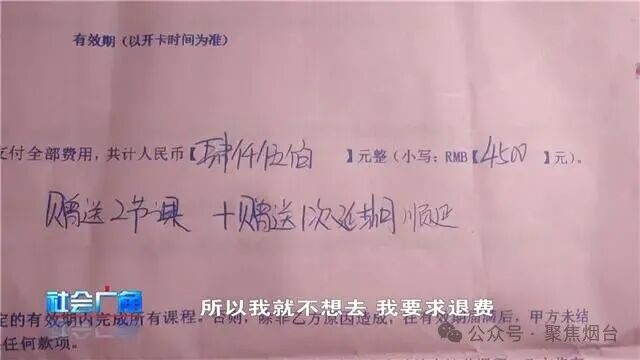 有效期（以开卡时间为准）
支付全部费用，共计人民币【肆仟伍佰】元整（小写：RMB【4500】元）。
赠送2节课 +赠送1次延期 顺延
社会广角
所以我就不想去 我要求退费
定的有效期内完成所有课程。否则，除非乙方原因造成，在有效期届满后，甲方未结
任何款项。
公众号·聚焦烟台